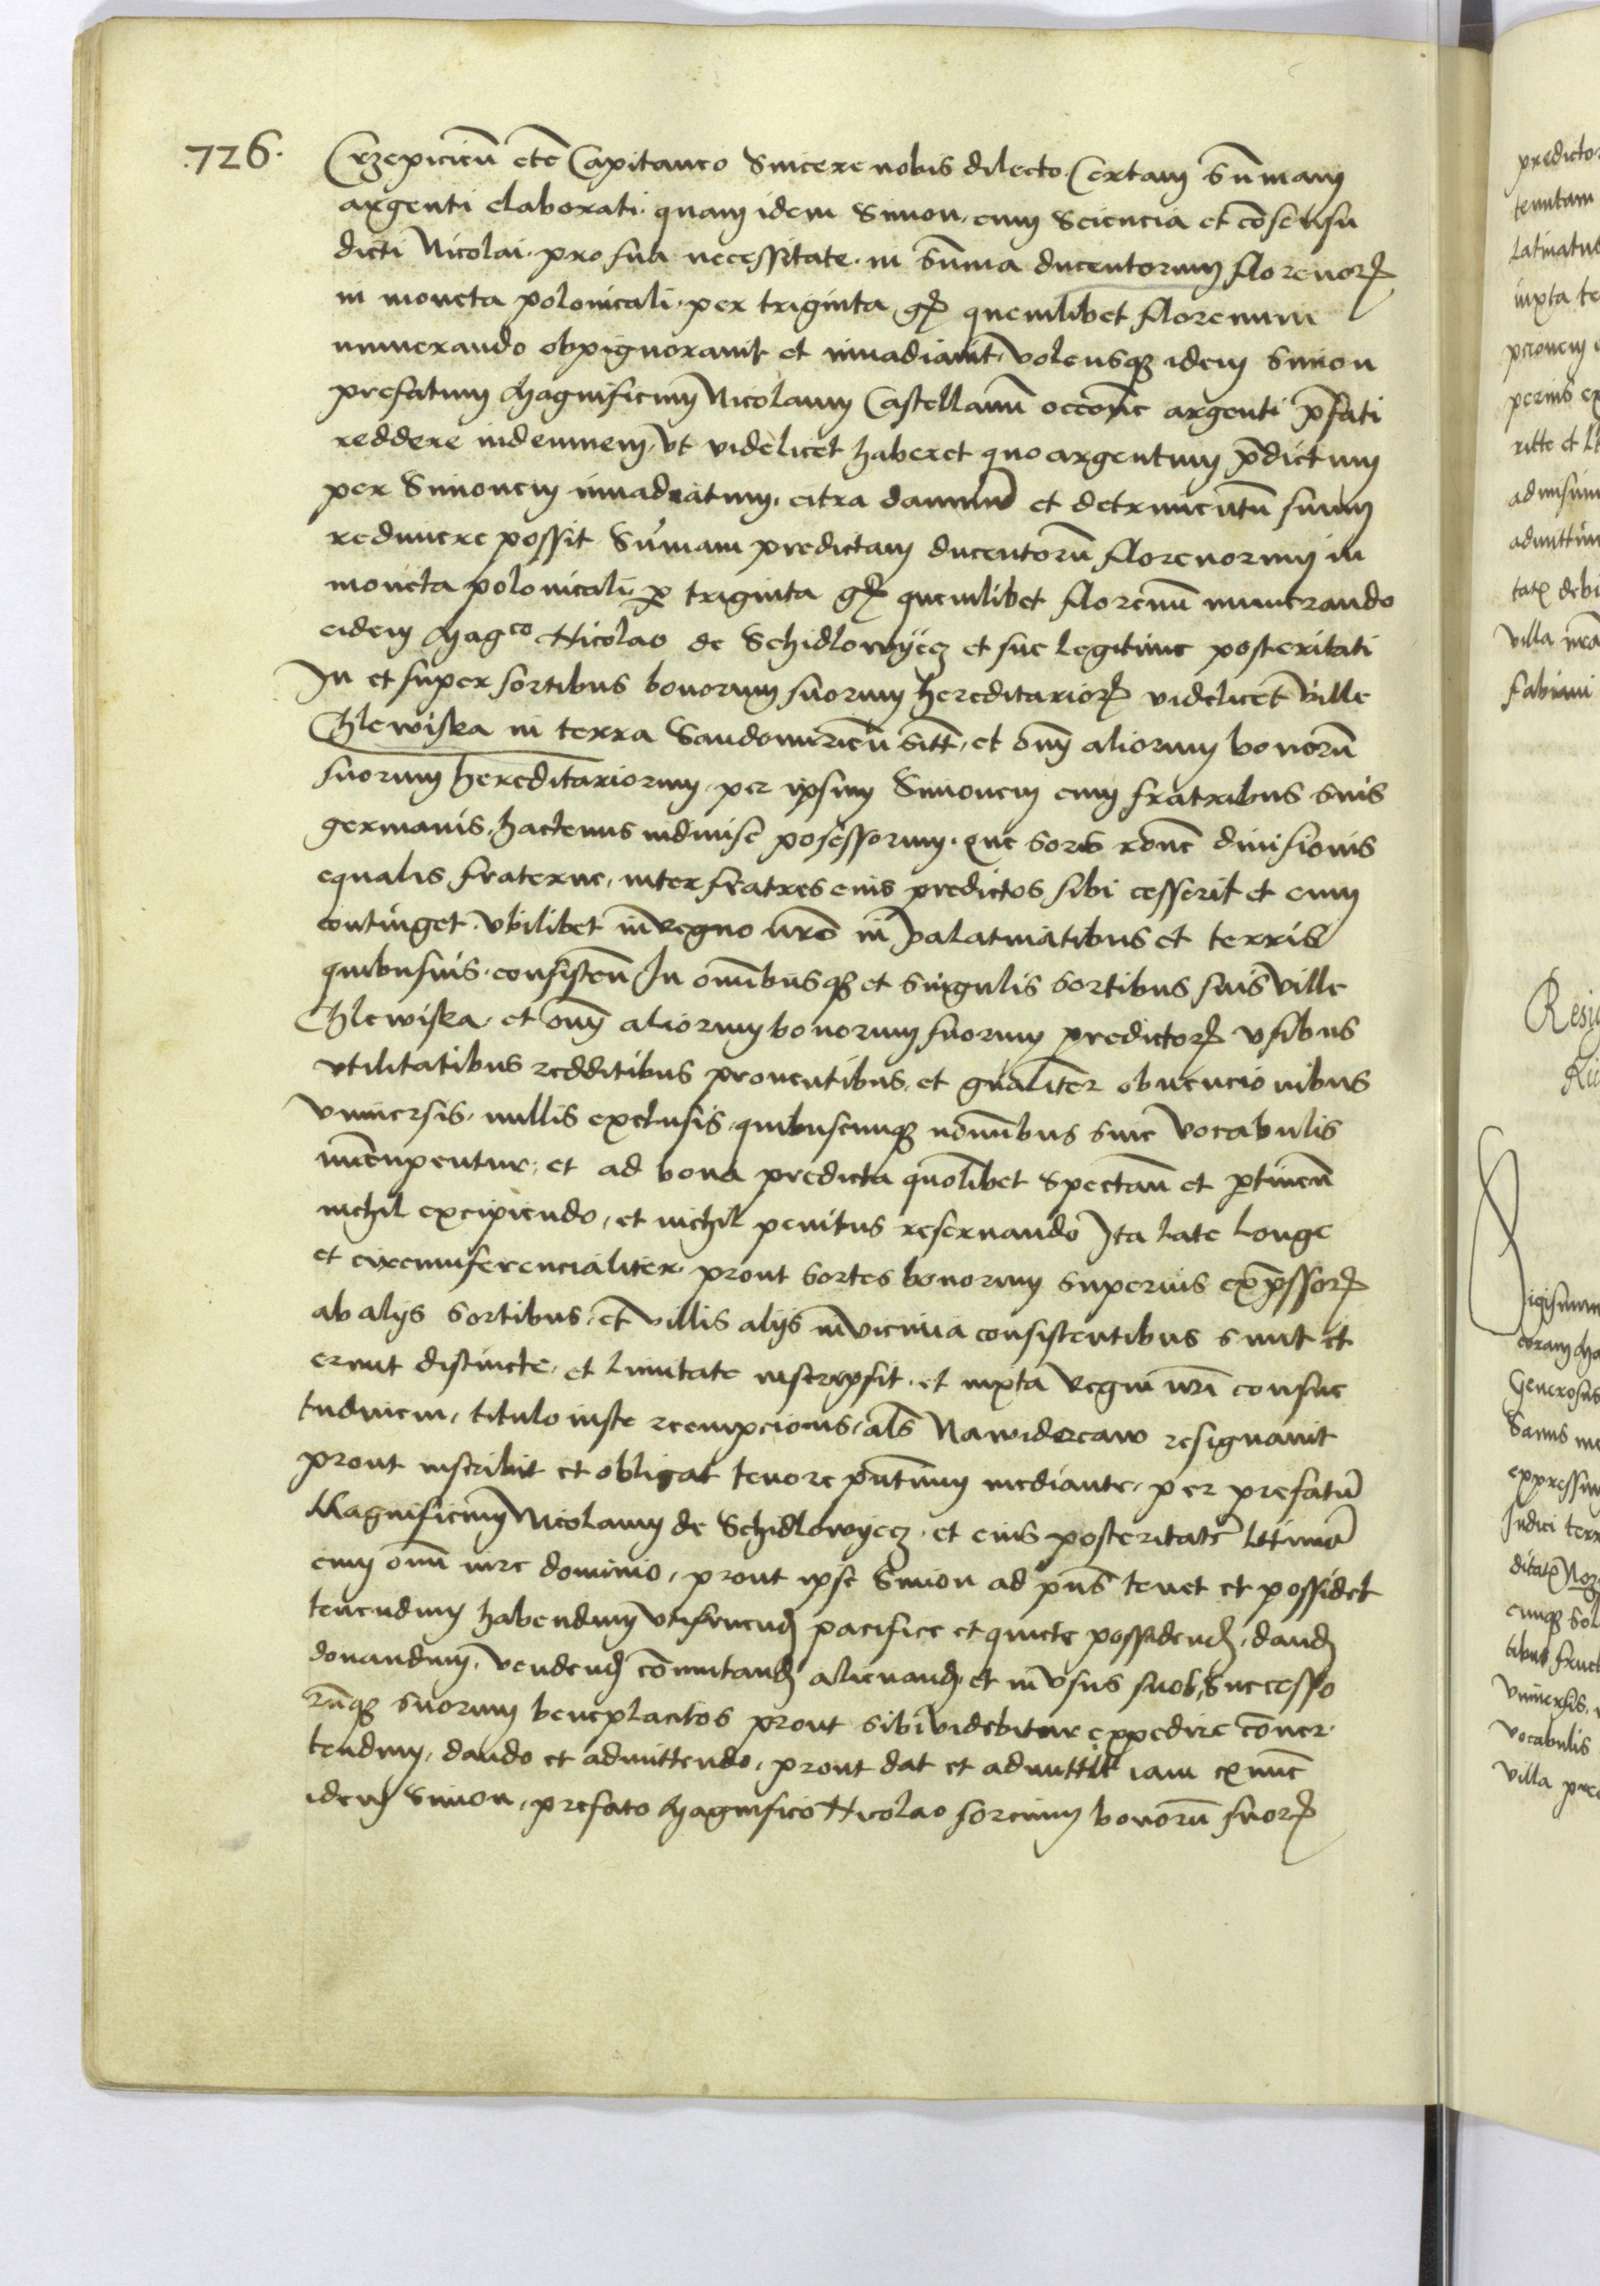 .726.
Crzepicien̄ etc̄ Capitaneo Sincere nobis dilecto. Certam Sum̄am
argenti elaborati. quam idem Simon. cum Sciencia et cōsensu
dicti Nicolai. pro sua necessitate. in Sum̄a ducentorum florenorꝫ
in moneta polonicali. per triginta gꝫ quemlibet florenum
numerando obpignoravit et invadiavit. volensqꝫ idem Simon
prefatum Magnificum Nicolaum Castellanū occōne argenti p̄fati
reddere indemnem, vt videlicet haberet quo argentum p̄dictum
per Simonem invadiatum. citra damnū et detrimentū suum
redimere possit Sum̄am predictam ducentorū florenorum in
moneta polonicali ꝑ triginta gꝫ quemlibet florenū numerando
eidem Magco Nicolao de Schidlowyecz et sue legitime posteritati
In et super sortibus bonorum suorum hereditariorꝫ videlicet ville
Chlewiska in terra Sandomirien̄ sitt̄, et om̄ aliorum bonorū
suorum hereditariorum. per ipsum Simonem cum fratribus suis
germanis, hactenus indivise possessorum. que sors rōne divisionis
equalis fraterne, inter fratres eius predictos sibi cesserit et eum
continget. vbilibet in regno nr̄o in palatinatibus et terris
quibusvis. consisten̄ In om̄ibusqꝫ et singulis sortibus suis ville
Chlewiska, et om̄ aliorum bonorum suorum predictorꝫ vsibus
vtilitatibus redditibus proventibus, et gn̄aliter obvencionibus
vniversis. nullis exclusis, quibuscumqꝫ nōnibus sive vocabulis
nuncupentur, et ad bona predicta quōlibet Spectan̄ et ꝑtinen̄
nichil excipiendo, et nichil penitus reservando Ita late Longe
et circumferencialiter. prout sortes bonorum superius exp̄ssorꝫ
ab alijs sortibus, et villis alijs in vicinia consistentibus sunt et
erunt distincte, et limitate inscripsit. et iuxta regni nr̄i consue
tudinem, titulo iuste reempcionis, al̄s Nawidercaw resignavit
prout inscribit et obligat tenore pn̄tium mediante, per prefatū
Magnificum Nicolaum de Schidlowyecz. et eius posteritatē Lttimā
cum om̄i iure dominio, prout ipse Simon ad pn̄s tenet et possidet
tenendum habendum vtifruend̄ pacifice et quiete possidend̄, dand̄
donandum, vendend̄ cōmutand̄ alienand̄, et in vsus suos, Successo
rūqꝫ suorum beneplacitos prout sibi videbitur expedire cōver
tendum, dando et admittendo, prout dat et admittit iam exnunc
idem Simon, prefato Magnifico Nicolao sortium bonorū suorꝫ